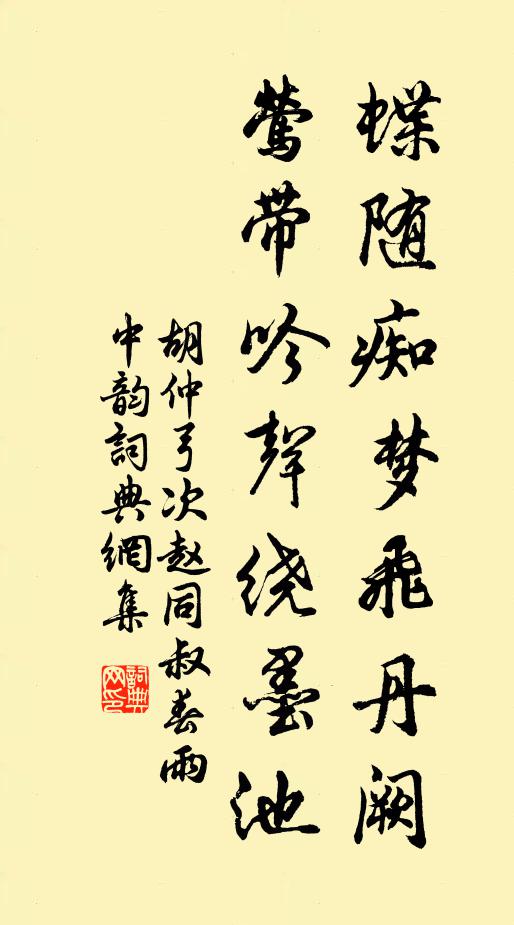 蝶随痴梦飛丹阙
莺带吟聲绕墨池
胡仲弓次赵同叔春雨
中韵詞典網集
詞典网印